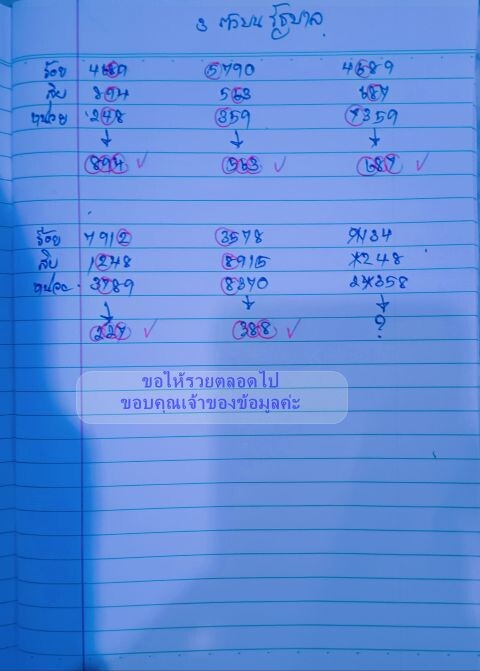 3 ตัวบน รัฐบาล
ร้อย 4689 5790 4689
สิบ 894 563 687
หน่วย 248 359 7359
↓ ↓ ↓
894 ✓ 563 ✓ 687 ✓
ร้อย 7912 3578 134
สิบ 1248 8915 248
หน่วย 3789 8370 358
↓ ↓ ↓
227 ✓ 388 ✓ ?
ขอให้รวยตลอดไป
ขอบคุณเจ้าของข้อมูลค่ะ